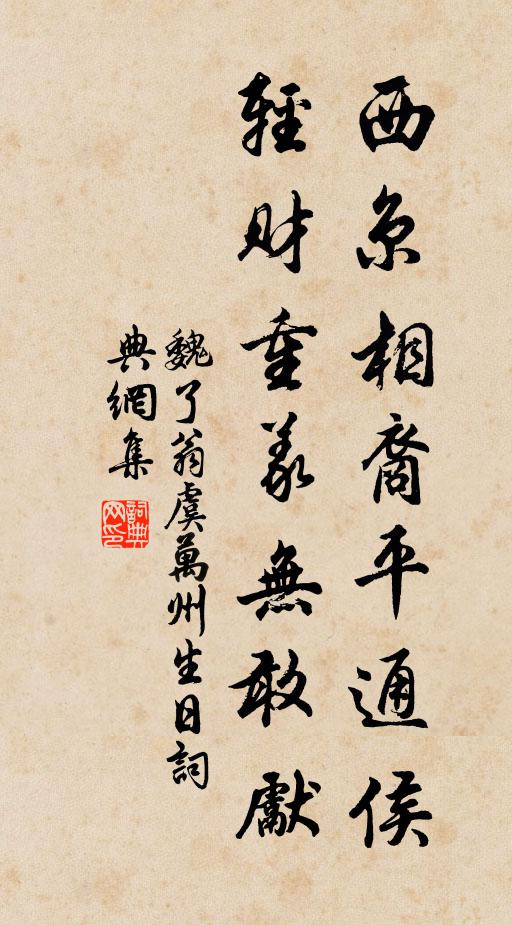 西京相裔平通侯
輕財重義無敢獻
魏了翁虞萬州生日詞
典網集
詞典网印